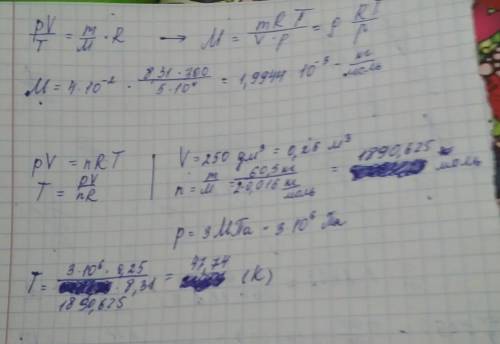 pV/T = m/M · R → M = mRT/V·p = ρ RT/p
M = 4·10⁻² · 8,31·300/5·10⁴ = 1,9944 · 10⁻³ кг/моль
pV = nRT
T = pV/nR
V = 250 дм³ = 0,25 м³
n = m/M = 60,5 кг/2·0,016 кг/моль = 1890,625 моль
p = 3 МПа = 3·10⁶ Па
T = 3·10⁶ · 0,25/1890,625 · 8,31 = 47,74 (К)